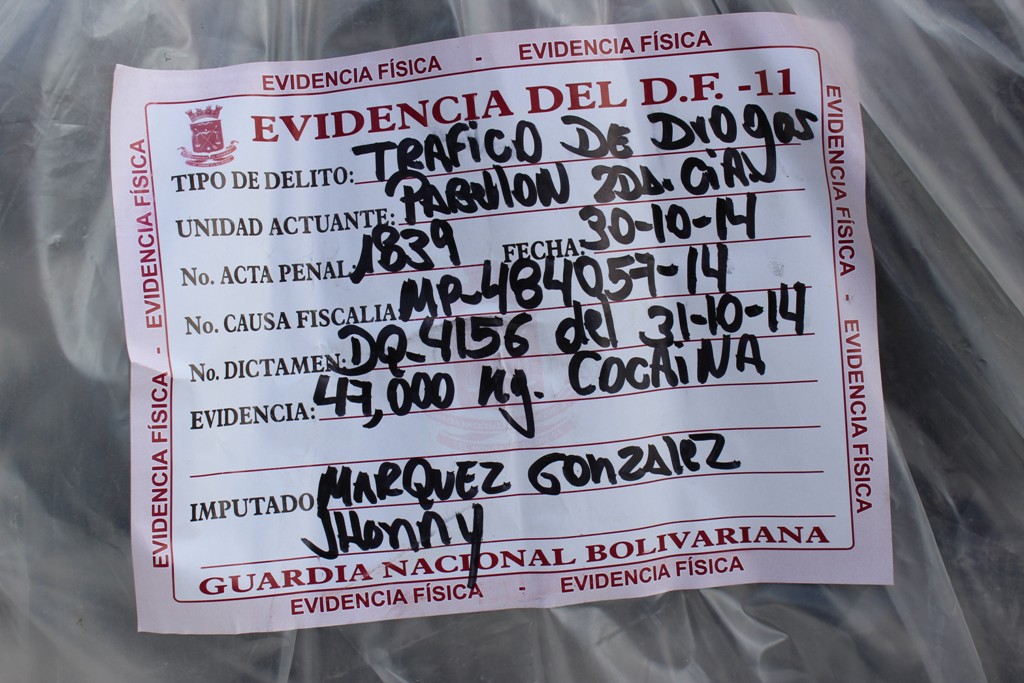 EVIDENCIA FÍSICA - EVIDENCIA FÍSICA
EVIDENCIA DEL D.F. -11
TIPO DE DELITO: TRAFICO DE DrOgas
UNIDAD ACTUANTE: 2DA. CIA
No. ACTA PENAL 1839 FECHA: 30-10-14
No. CAUSA FISCALIA MP-484057-14
No. DICTAMEN: DQ-4156 del 31-10-14
EVIDENCIA: 47,000 Kg. COCAINA
IMPUTADO MARQUEZ GONZALEZ
JHonny
GUARDIA NACIONAL BOLIVARIANA
EVIDENCIA FÍSICA - EVIDENCIA FÍSICA
EVIDENCIA FÍSICA - EVIDENCIA FÍSICA
EVIDENCIA FÍSICA - EVIDENCIA FÍSICA